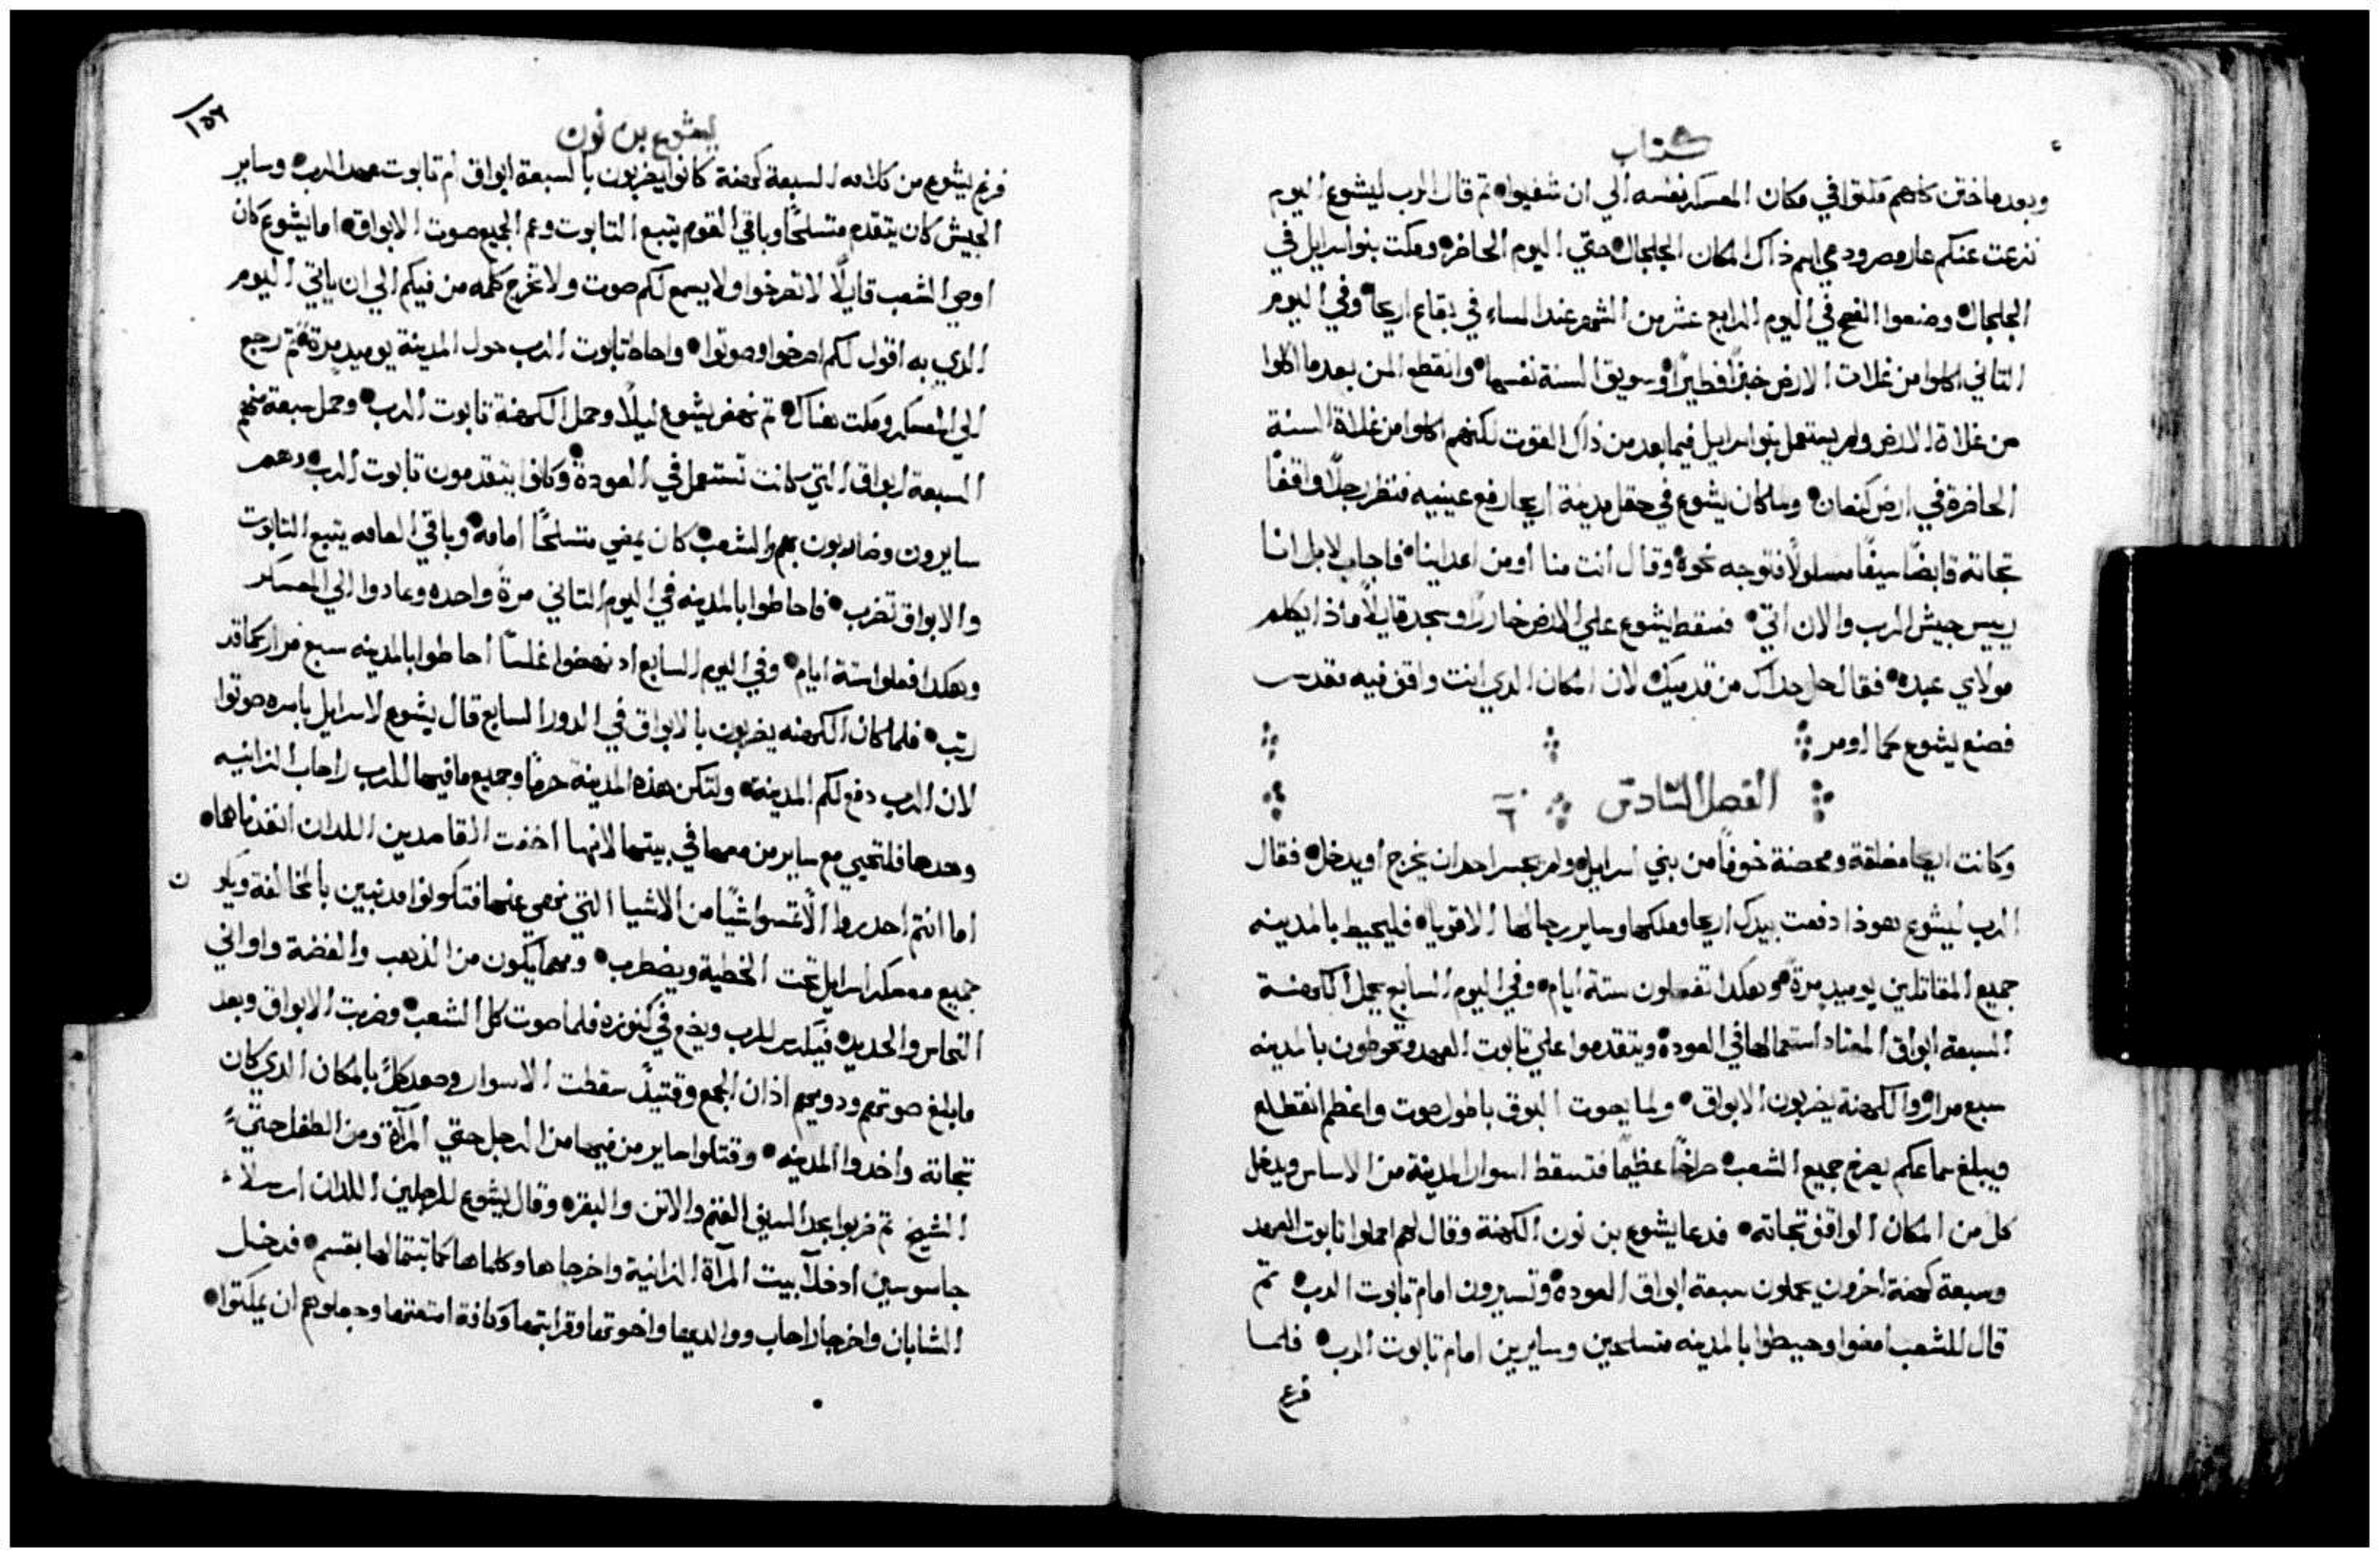 كتاب
وبعد ما ختن كلهم مكثوا في مكان المعسكر نفسه الي ان شفيوا ثم قال الرب ليشوع اليوم
نزعت عنكم عار مصر ودعي اسم ذاك المكان الجلجال حتي اليوم الحاضر ومكت بنو اسرايل في
الجلجال وصنعوا الفصح في اليوم الرابع عشر من الشهر عند المساء في بقاع اريحا وفي اليوم
التاني اكلوا من غلات الارض خبزًا فطيرًا وسويق السنة نفسها وانقطع المن بعد ما اكلوا
من غلاة الارض ولم يستعمل بنو اسرايل فيما بعد من ذاك القوت لكنهم اكلوا من غلاة السنة
الحاضرة في ارض كنعان ولما كان يشوع في حقل مدينة اريحا رفع عينيه فنظر رجلًا واقفًا
تجاته قابضًا سيفًا مسلولًا فتوجه نحوه وقال أنت منا أو من اعداينا فاجاب لا بل انا
رييس جيش الرب والان اتي فسقط يشوع علي الارض خاررًا وسجد قايلًا ماذا يكلم
مولاي عبده فقال حل حداك من قدميك لان المكان الدي انت واقف فيه مقدس
فصنع يشوع كما اومر
الفصل السادس ٦
وكانت اريحا مغلقة ومحصنة خوفًا من بني اسرايل ولم يجسر احد ان يخرج أو يدخل فقال
الرب ليشوع هوذا دفعت بيدك اريحا وملكها وساير رجالها الاقويا فليحيط بالمدينه
جميع المقاتلين يوميدٍ مرةً وهكدا تفعلون ستة أيام وفي اليوم السابع يحمل الكهنة
السبعة ابواق المعتاد استعمالها في العودة ويتقدموا علي تابوت العهد وتحوطون بالمدينه
سبع مرار والكهنة يضربون الابواق ولما يصوت البوق باطول صوت واعظم انقطاع
ويبلغ سماعكم يصرخ جميع الشعب صراخًا عظيمًا فتسقط اسوار المدينة من الاساس ويدخل
كل من المكان الواقف تجاته فدعا يشوع بن نون الكهنة وقال لهم احملوا تابوت العهد
وسبعة كهنة اخرون يحملون سبعة ابواق العودة وتسيرون امام تابوت الرب تم
قال للشعب امضوا وحيطوا بالمدينه متسلحين وسايرين امام تابوت الرب فلما
فرغ
يشوع بن نون
١٥٢
فرغ يشوع من كلامه السبعة كهنة كانوا يضربون بالسبعة ابواق أم تابوت عهد الرب وساير
الجيش كان يتقدم متسلحًا وباقي القوم يتبع التابوت وعم الجميع صوت الابواق اما يشوع كان
اوصي الشعب قايلًا لا تصرخوا ولا يسمع لكم صوت ولا تخرج كلمه من فيكم الي ان ياتي اليوم
الدي به اقول لكم اصرخوا وصوتوا واحاط تابوت الرب حول المدينة يوميدٍ مرةً تم رجع
الي المعسكر ومكت هناك تم نهض يشوع ليلًا وحمل الكهنة تابوت الرب وحمل سبعة منهم
السبعة ابواق التي كانت تستعمل في العودة وكانوا يتقدمون تابوت الرب وهم
سايرون وضاربون بهم والشعب كان يمضي متسلحًا امامه وباقي العامه يتبع التابوت
والابواق تضرب فاحاطوا بالمدينه في اليوم التاني مرةً واحده وعادوا الي المعسكر
وهكدا فعلوا ستة ايام وفي اليوم السابع اد نهضوا غلسًا أحاطوا بالمدينه سبع مرار كما قد
رتب فلما كان الكهنه يضربون بالابواق في الدور السابع قال يشوع لاسرايل باسره صوتوا
لان الرب دفع لكم المدينة ولتكن هذه المدينة حرمًا وجميع ما فيها للرب راحاب الزانيه
وحدها فلتحيي مع ساير من معها في بيتها لانها اخفت القاصدين اللدان انفدناها
اما انتم احدروا ألّا تمسوا شيًا من الاشيا التي نهي عنها فتكونوا مدنبين بالمخالفة ويكو ن
جميع معسكر اسرايل تحت الخطية ويضطرب ومهما يكون من الذهب والفضة واواني
النحاس والحديد فيكرس للرب ويضع في كنوزه فلما صوت كل الشعب وضربت الابواق وبعد
ما بلغ صوتهم ودويهم اذان الجمع وقتيدٍ سقطت الاسوار وصعد كلٌ بالمكان الدي كان
تجاته وأخدوا المدينه وقتلوا ساير من فيها من الرجل حتي المرآة ومن الطفل حتي
الشيخ تم ضربوا بحد السيف الغنم والاتن والبقر وقال يشوع للرجلين اللدان ارسلا
جاسوسين ادخلا بيت المرآة الزانية واخرجاها وكلما لها كما تبتما لها بقسم فدخل
الشابان واخرجا راحاب ووالديها واخوتها وقرابتها وكافة امتعتها وجعلوهم ان يمكتوا